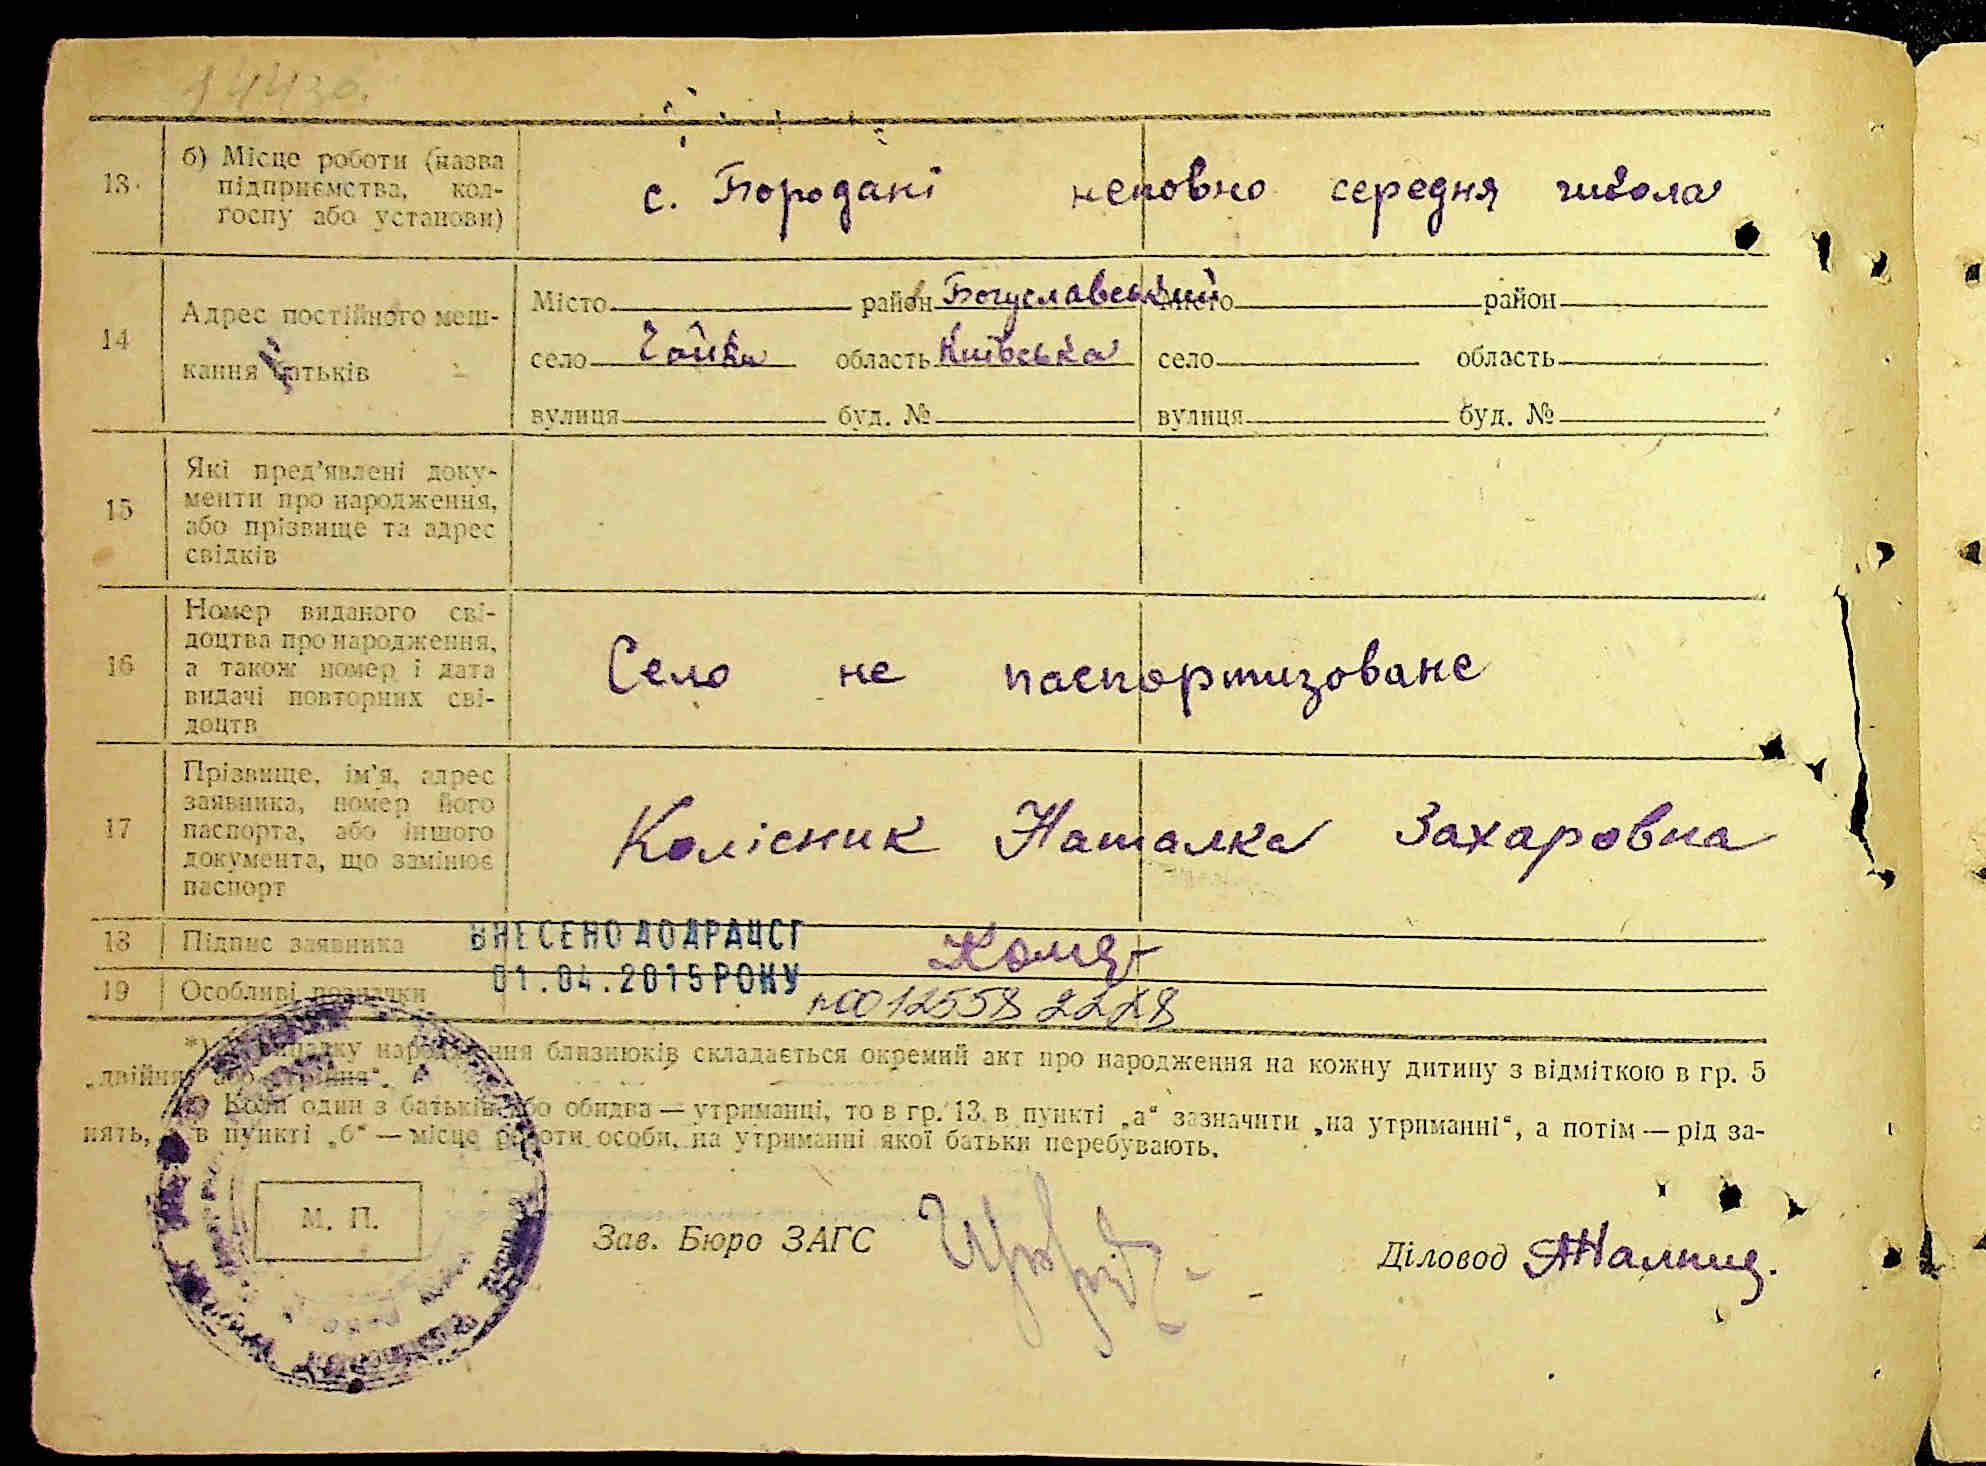 13
б) Місце роботи (назва
підприємства, кол-
госпу або установи)
с. Бородані неповно середня школа
14
Адрес постійного меш-
кання батьків
Місто район Богуславський Місто район
село Чайки область Київська село область
вулиця буд. № вулиця буд. №
15
Які пред'явлені доку-
менти про народження,
або прізвище та адрес
свідків
16
Номер виданого сві-
доцтва про народження,
а також номер і дата
видачі повторних сві-
доцтв
Село не паспортизоване
17
Прізвище, ім'я, адрес
заявника, номер його
паспорта, або іншого
документа, що замінює
паспорт
Колісник Наталка Захаровна
18 Підпис заявника
ВНЕСЕНО ДО ДРАЦСГ
01.04.2015 РОКУ
19 Особливі позначки
*) У випадку народження близнюків складається окремий акт про народження на кожну дитину з відміткою в гр. 5
„двійня" або „трійня".
Коли один з батьків або обидва — утриманці, то в гр. 13, в пункті „а" зазначити „на утриманні", а потім — рід за-
нять, а в пункті „б" — місце роботи особи, на утриманні якої батьки перебувають.
М. П.
Зав. Бюро ЗАГС
Діловод